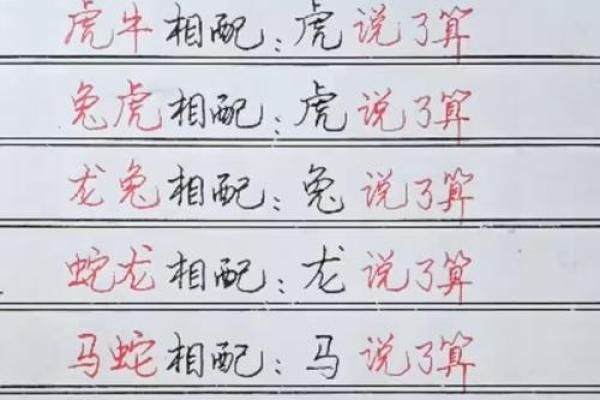 虎牛相配：虎说了算
兔虎相配：虎说了算
龙兔相配：兔说了算
蛇龙相配：龙说了算
马蛇相配：马说了算